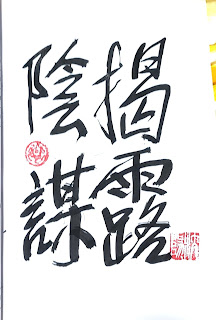 揭露
陰謀